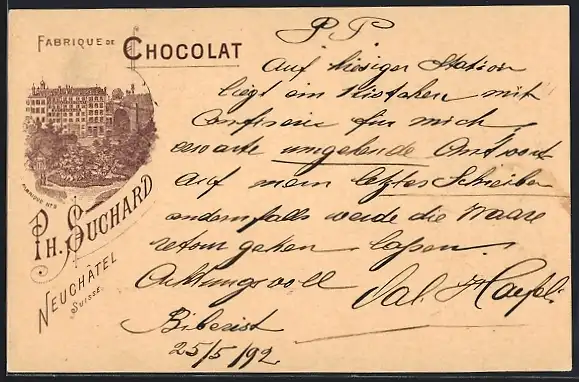 FABRIQUE DE CHOCOLAT
FABRIQUE No 5
PH. SUCHARD
NEUCHÂTEL
SUISSE.
P P
Auf hiesiger Station
liegt ein Kistchen mit
Confiserie für mich,
erwarte umgehende Antwort
auf mein letztes Schreiben
andernfalls werde die Waare
retour gehen lassen.
Achtungsvoll Sal. Haefeli
Biberist
25/5/92.